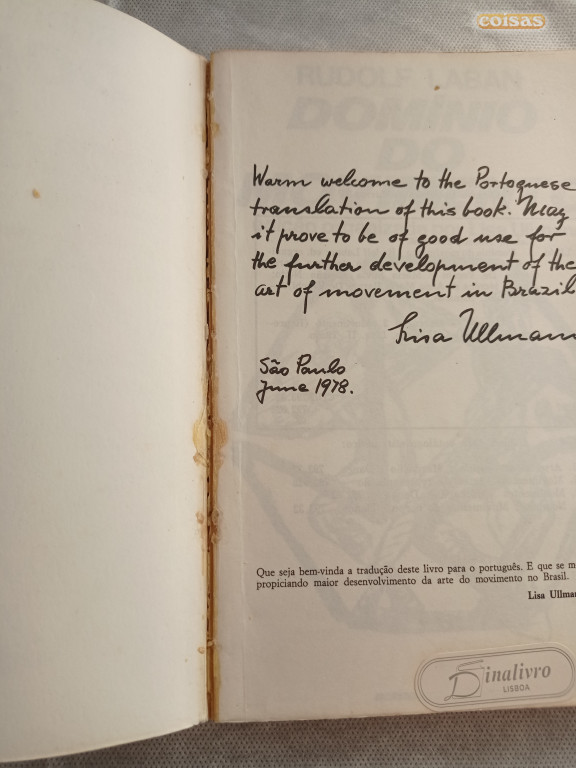 coisas
RUDOLF LABAN
DOMÍNIO
DO
Warm welcome to the Portoguese
translation of this book. May
it prove to be of good use for
the further development of the
art of movement in Brazil
Lisa Ullmann
São Paulo
June 1978.
Que seja bem-vinda a tradução deste livro para o português. E que se m
propiciando maior desenvolvimento da arte do movimento no Brasil.
Lisa Ullman
Sinalivro
LISBOA